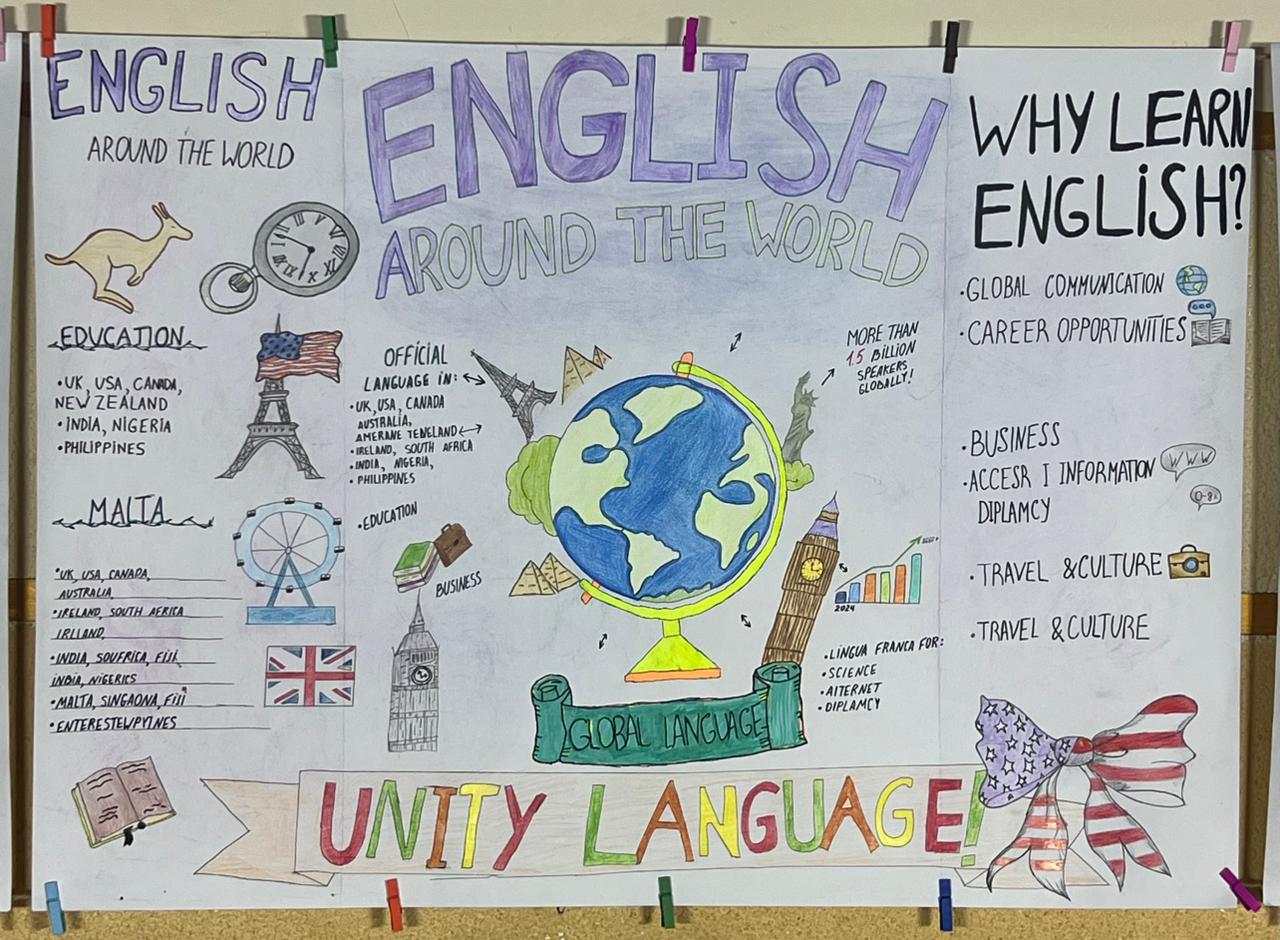 ENGLISH
AROUND THE WORLD
EDUCATION
•UK, USA, CANADA,
NEW ZEALAND
•INDIA, NIGERIA
•PHILIPPINES
MALTA
•UK, USA, CANADA,
AUSTRALIA,
•IRELAND, SOUTH AFRICA
IRLLAND,
•INDIA, SOUFRICA, FIJI,
INDIA, NIGERICS
•MALTA, SINGAONA, FIJI
•ENTERESTEWPYINES
ENGLISH
AROUND THE WORLD
OFFICIAL
LANGUAGE IN:
•UK, USA, CANADA
AUSTRALIA,
AMERANE TENELAND
•IRELAND, SOUTH AFRICA
•INDIA, NIGERIA,
•PHILIPPINES
•EDUCATION
BUSINESS
MORE THAN
1.5 BILLION
SPEAKERS
GLOBALLY!
2024
•LINGUA FRANCA FOR:
•SCIENCE
•AITERNET
•DIPLAMCY
GLOBAL LANGUAGE
UNITY LANGUAGE!
WHY LEARN
ENGLISH?
•GLOBAL COMMUNICATION
•CAREER OPPORTUNITIES
•BUSINESS
•ACCESR I INFORMATION
WWW
DIPLAMCY
•TRAVEL & CULTURE
•TRAVEL & CULTURE